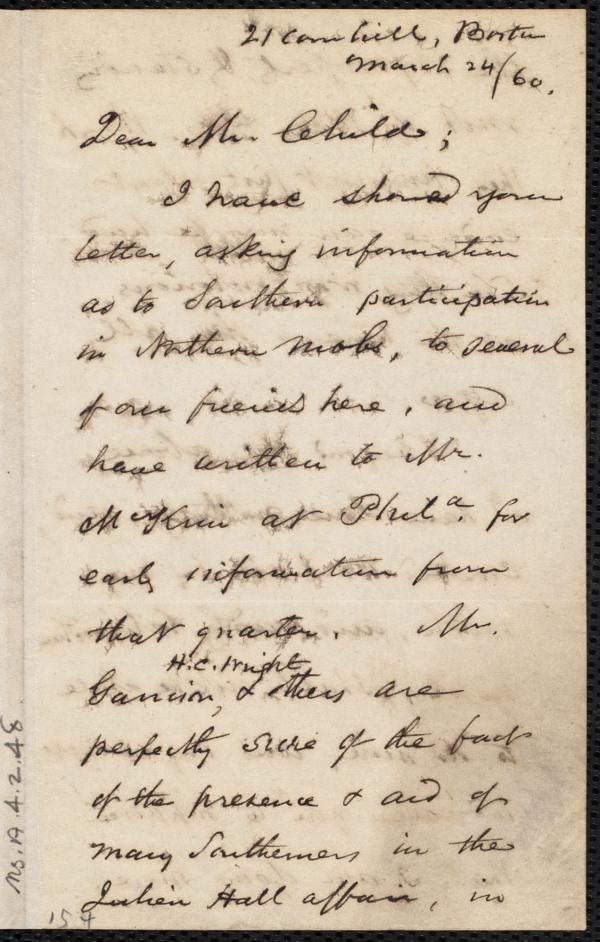 21 Cornhill, Boston
March 24/60.
Dear Mr. Child;
I have showed your
letter, asking information
as to Southern participation
in Northern mobs, to several
of our friends here, and
have written to Mr.
McKim at Phila. for
early information from
that quarter. Mr.
H.C. Wright
Garrison, & others are
perfectly sure of the fact
of the presence & aid of
many Southerners in the
Julien Hall affair, in
Ms. A. 4. 2. 48
15 A